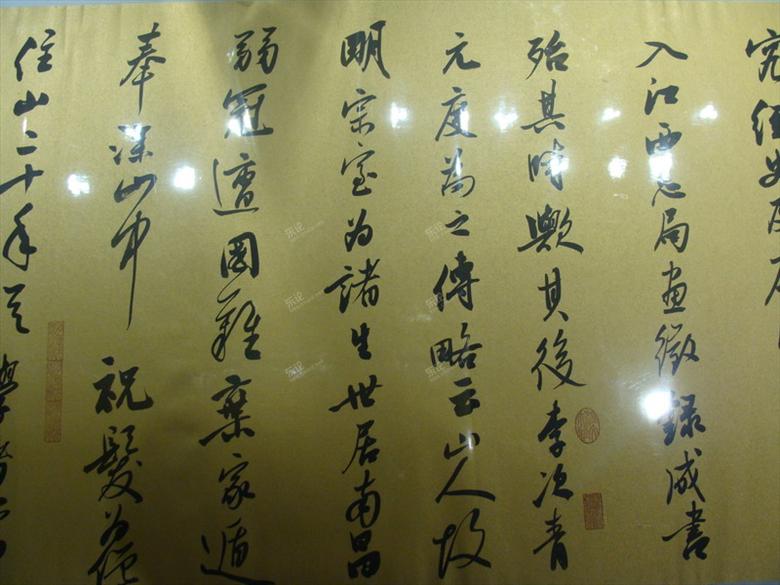 入江西志局畫徵録成書
殆其時歟其後李次青
元度為之傳略云山人故
明宗室為諸生世居南昌
弱冠遭國難棄家遁
奉深山中祝髮為僧
住山二十年